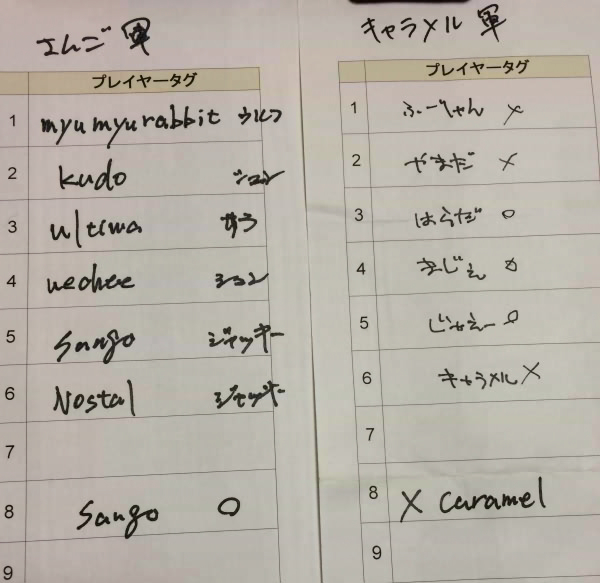 さんご軍
プレイヤータグ
1 myumyurabbit ウルフ
2 kudo ジョン
3 ultima サラ
4 uechee ション
5 Sango ジャッキー
6 Nostal ジャッキー
7
8 Sango ○
9
キャラメル軍
プレイヤータグ
1 ふーちゃん ×
2 やまだ ×
3 はらだ ○
4 まじぇ ○
5 じゃえー ○
6 キャラメル ×
7
8 × caramel
9